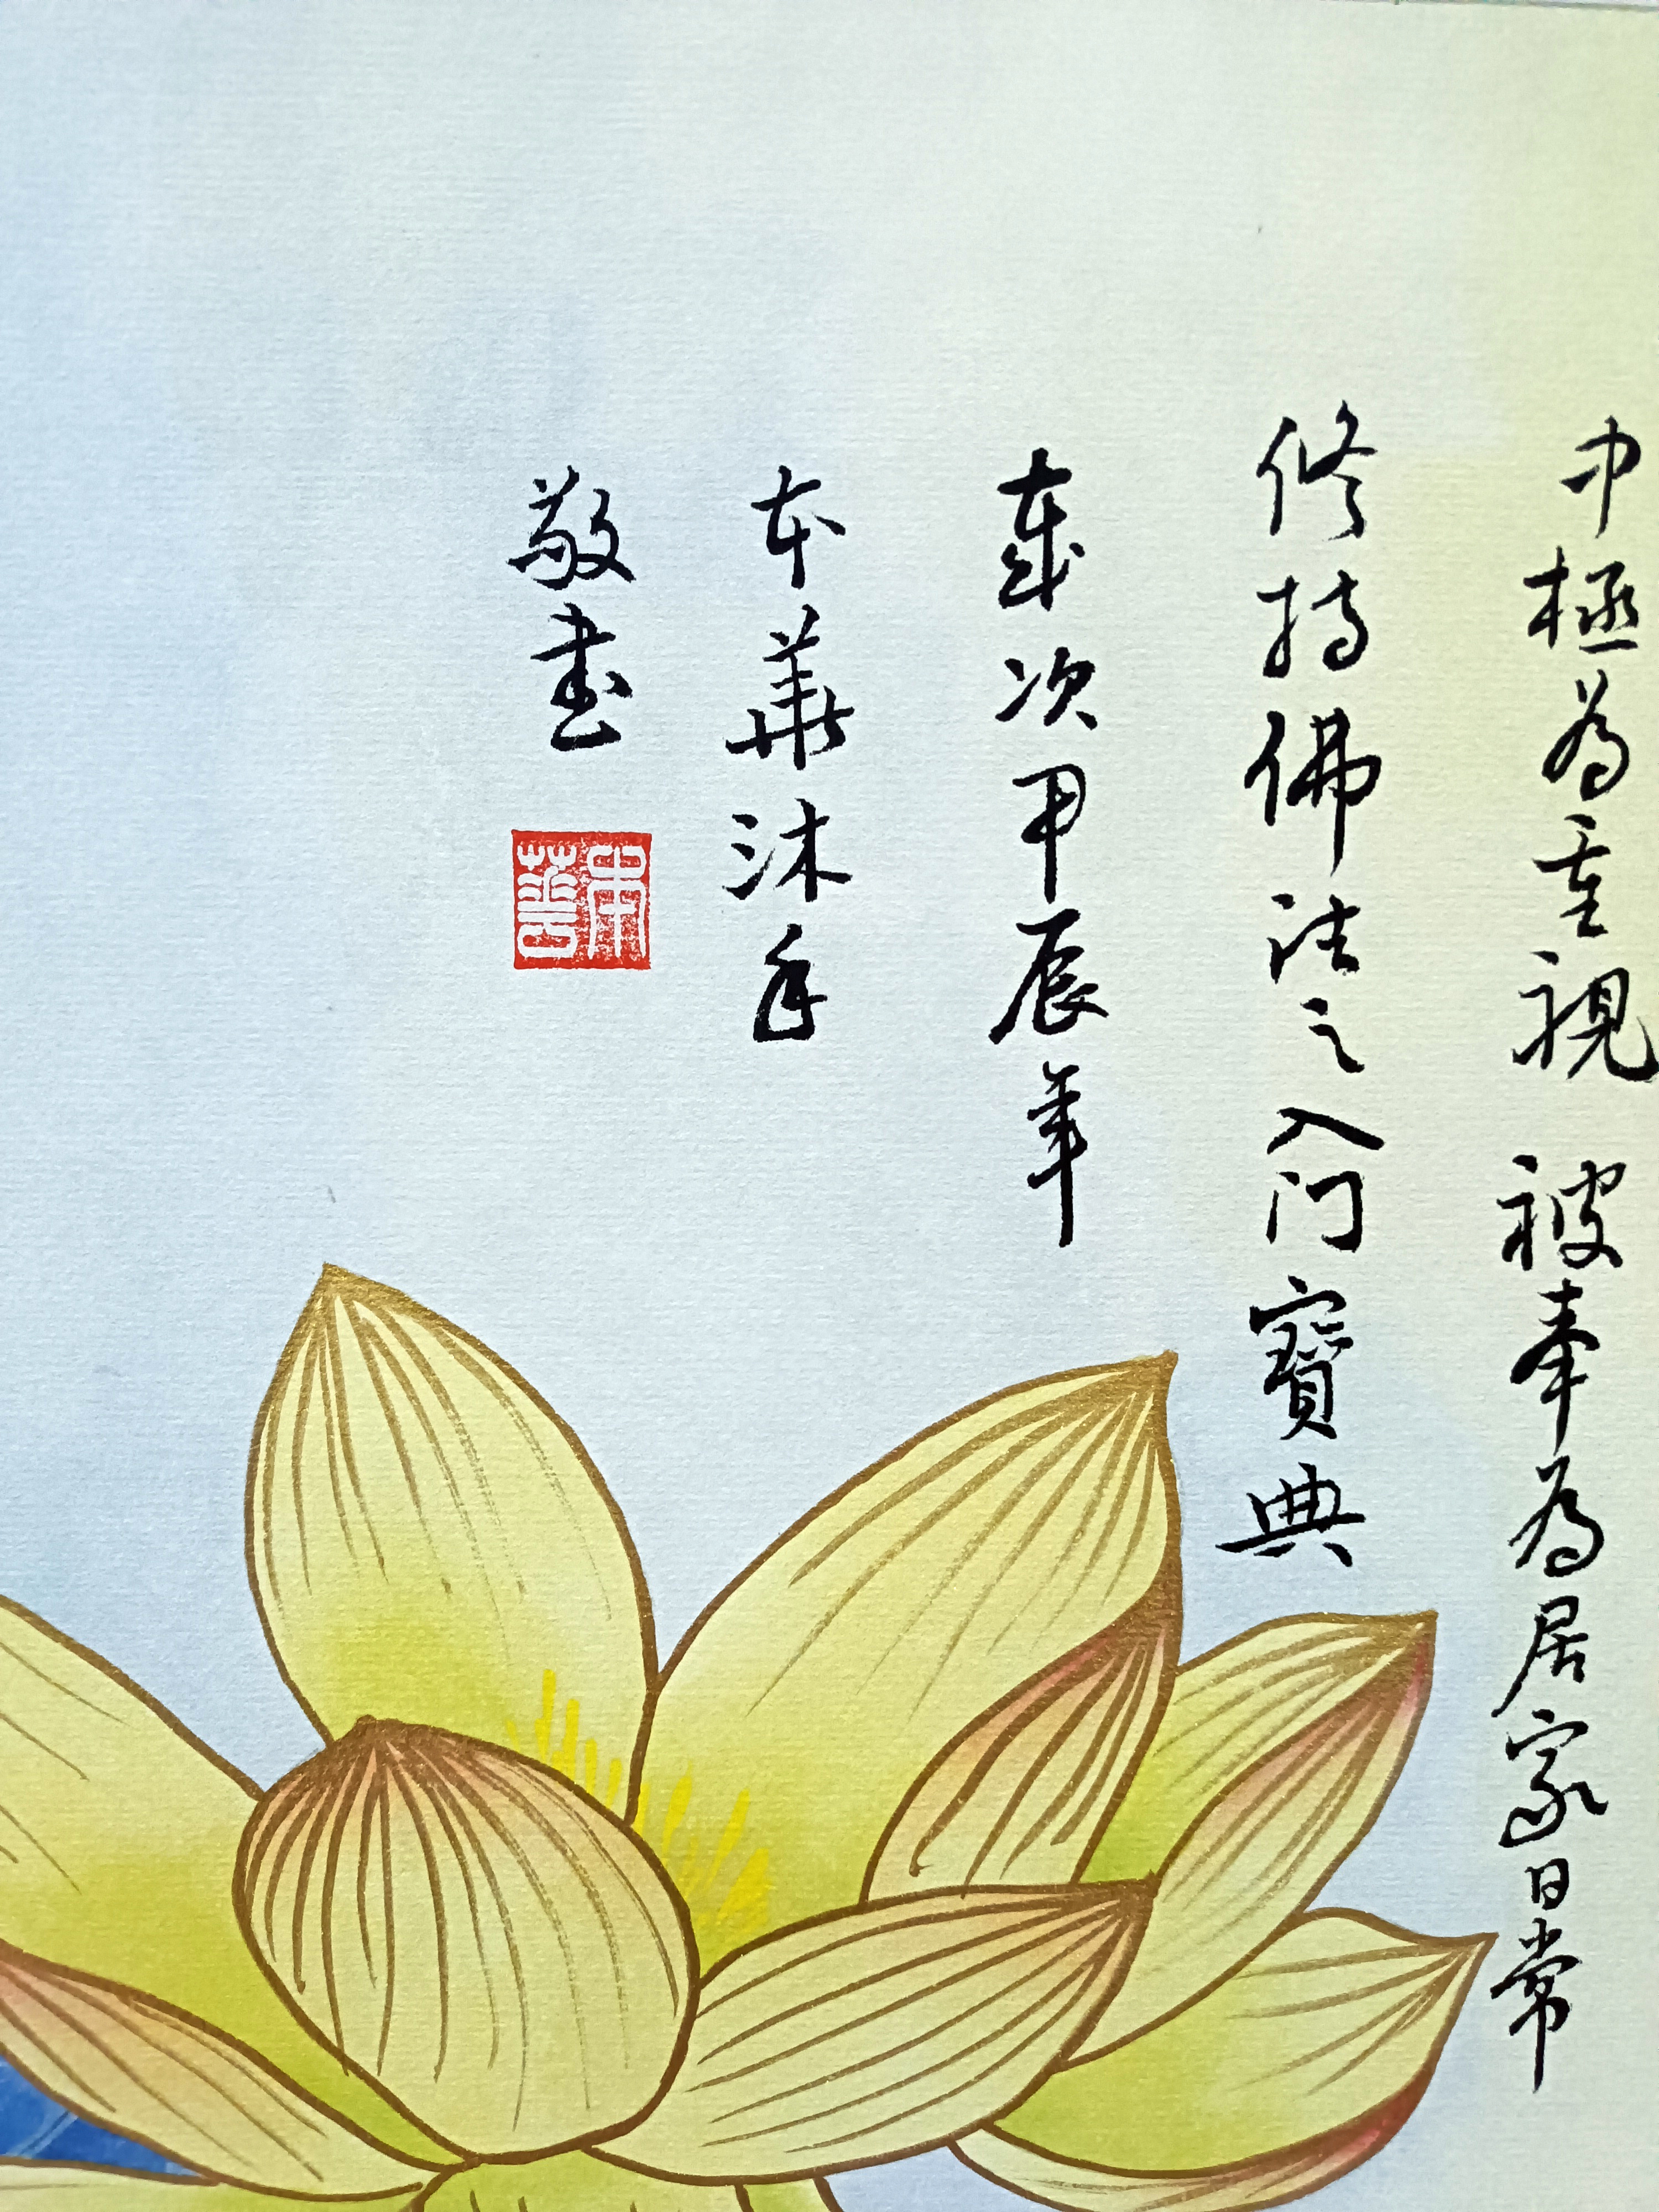 中極為重視被奉為居家日常
修持佛法之入门寶典
歲次甲辰年
本華沐手
敬書
本華